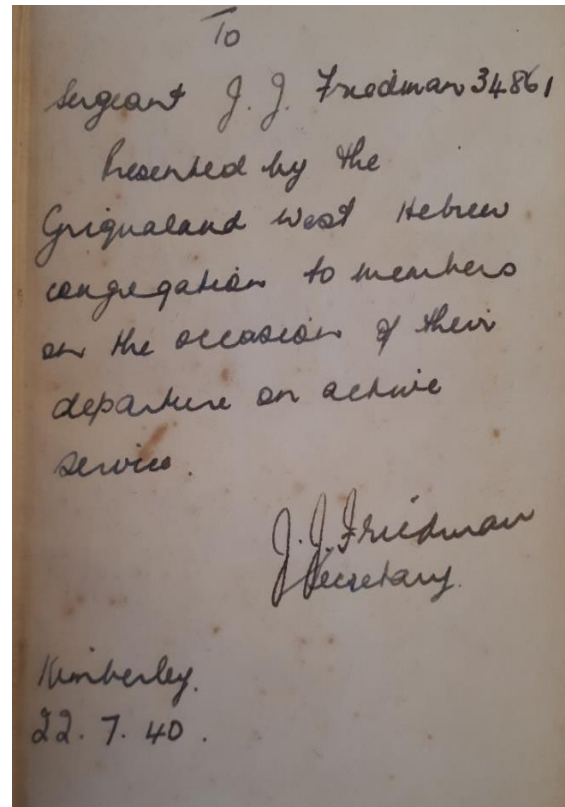 To
Sergeant J. J. Friedman 34861
Presented by the
Griqualand West Hebrew
congregation to members
on the occasion of their
departure on active
service.
J. J. Friedman
Secretary.
Kimberley.
22. 7. 40.